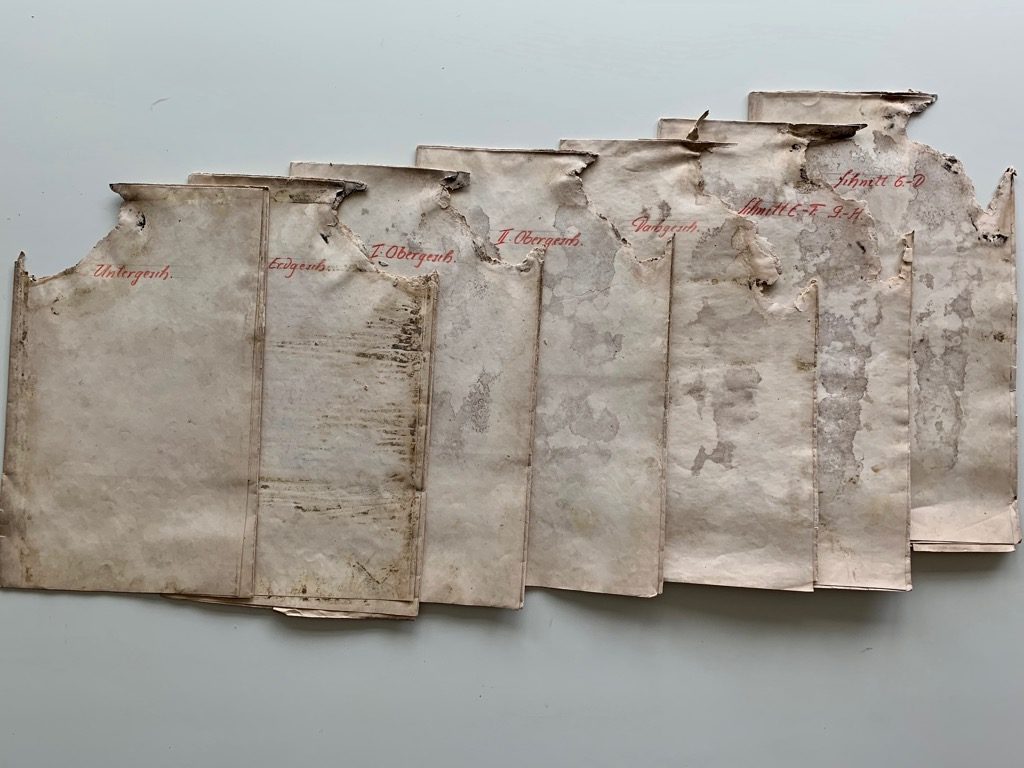 Untergesch.
Erdgesch.
I. Obergesch.
II. Obergesch.
Dachgesch.
Schnitt E-F. G-H.
Schnitt C-D